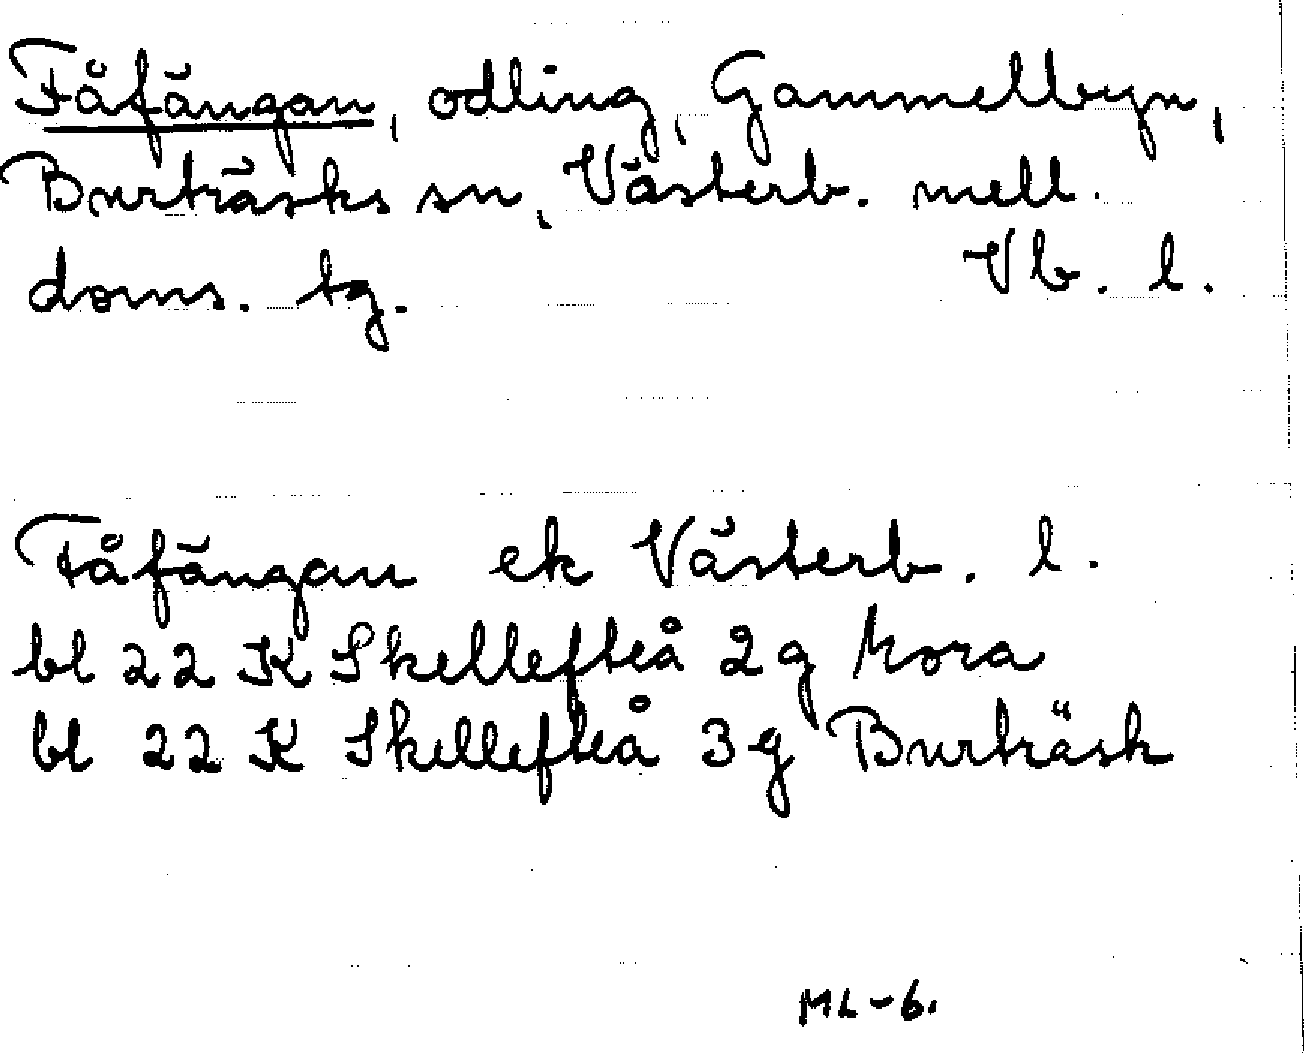 Fåfängan, odling, Gammelbyn,
Burträsks sn, Västerb. mell.
doms. tg. Vb. l.
Fåfängan ek Västerb. l.
bl 22 K Skellefteå 2g Mora
bl 22 K Skellefteå 3g Burträsk
ML-6.